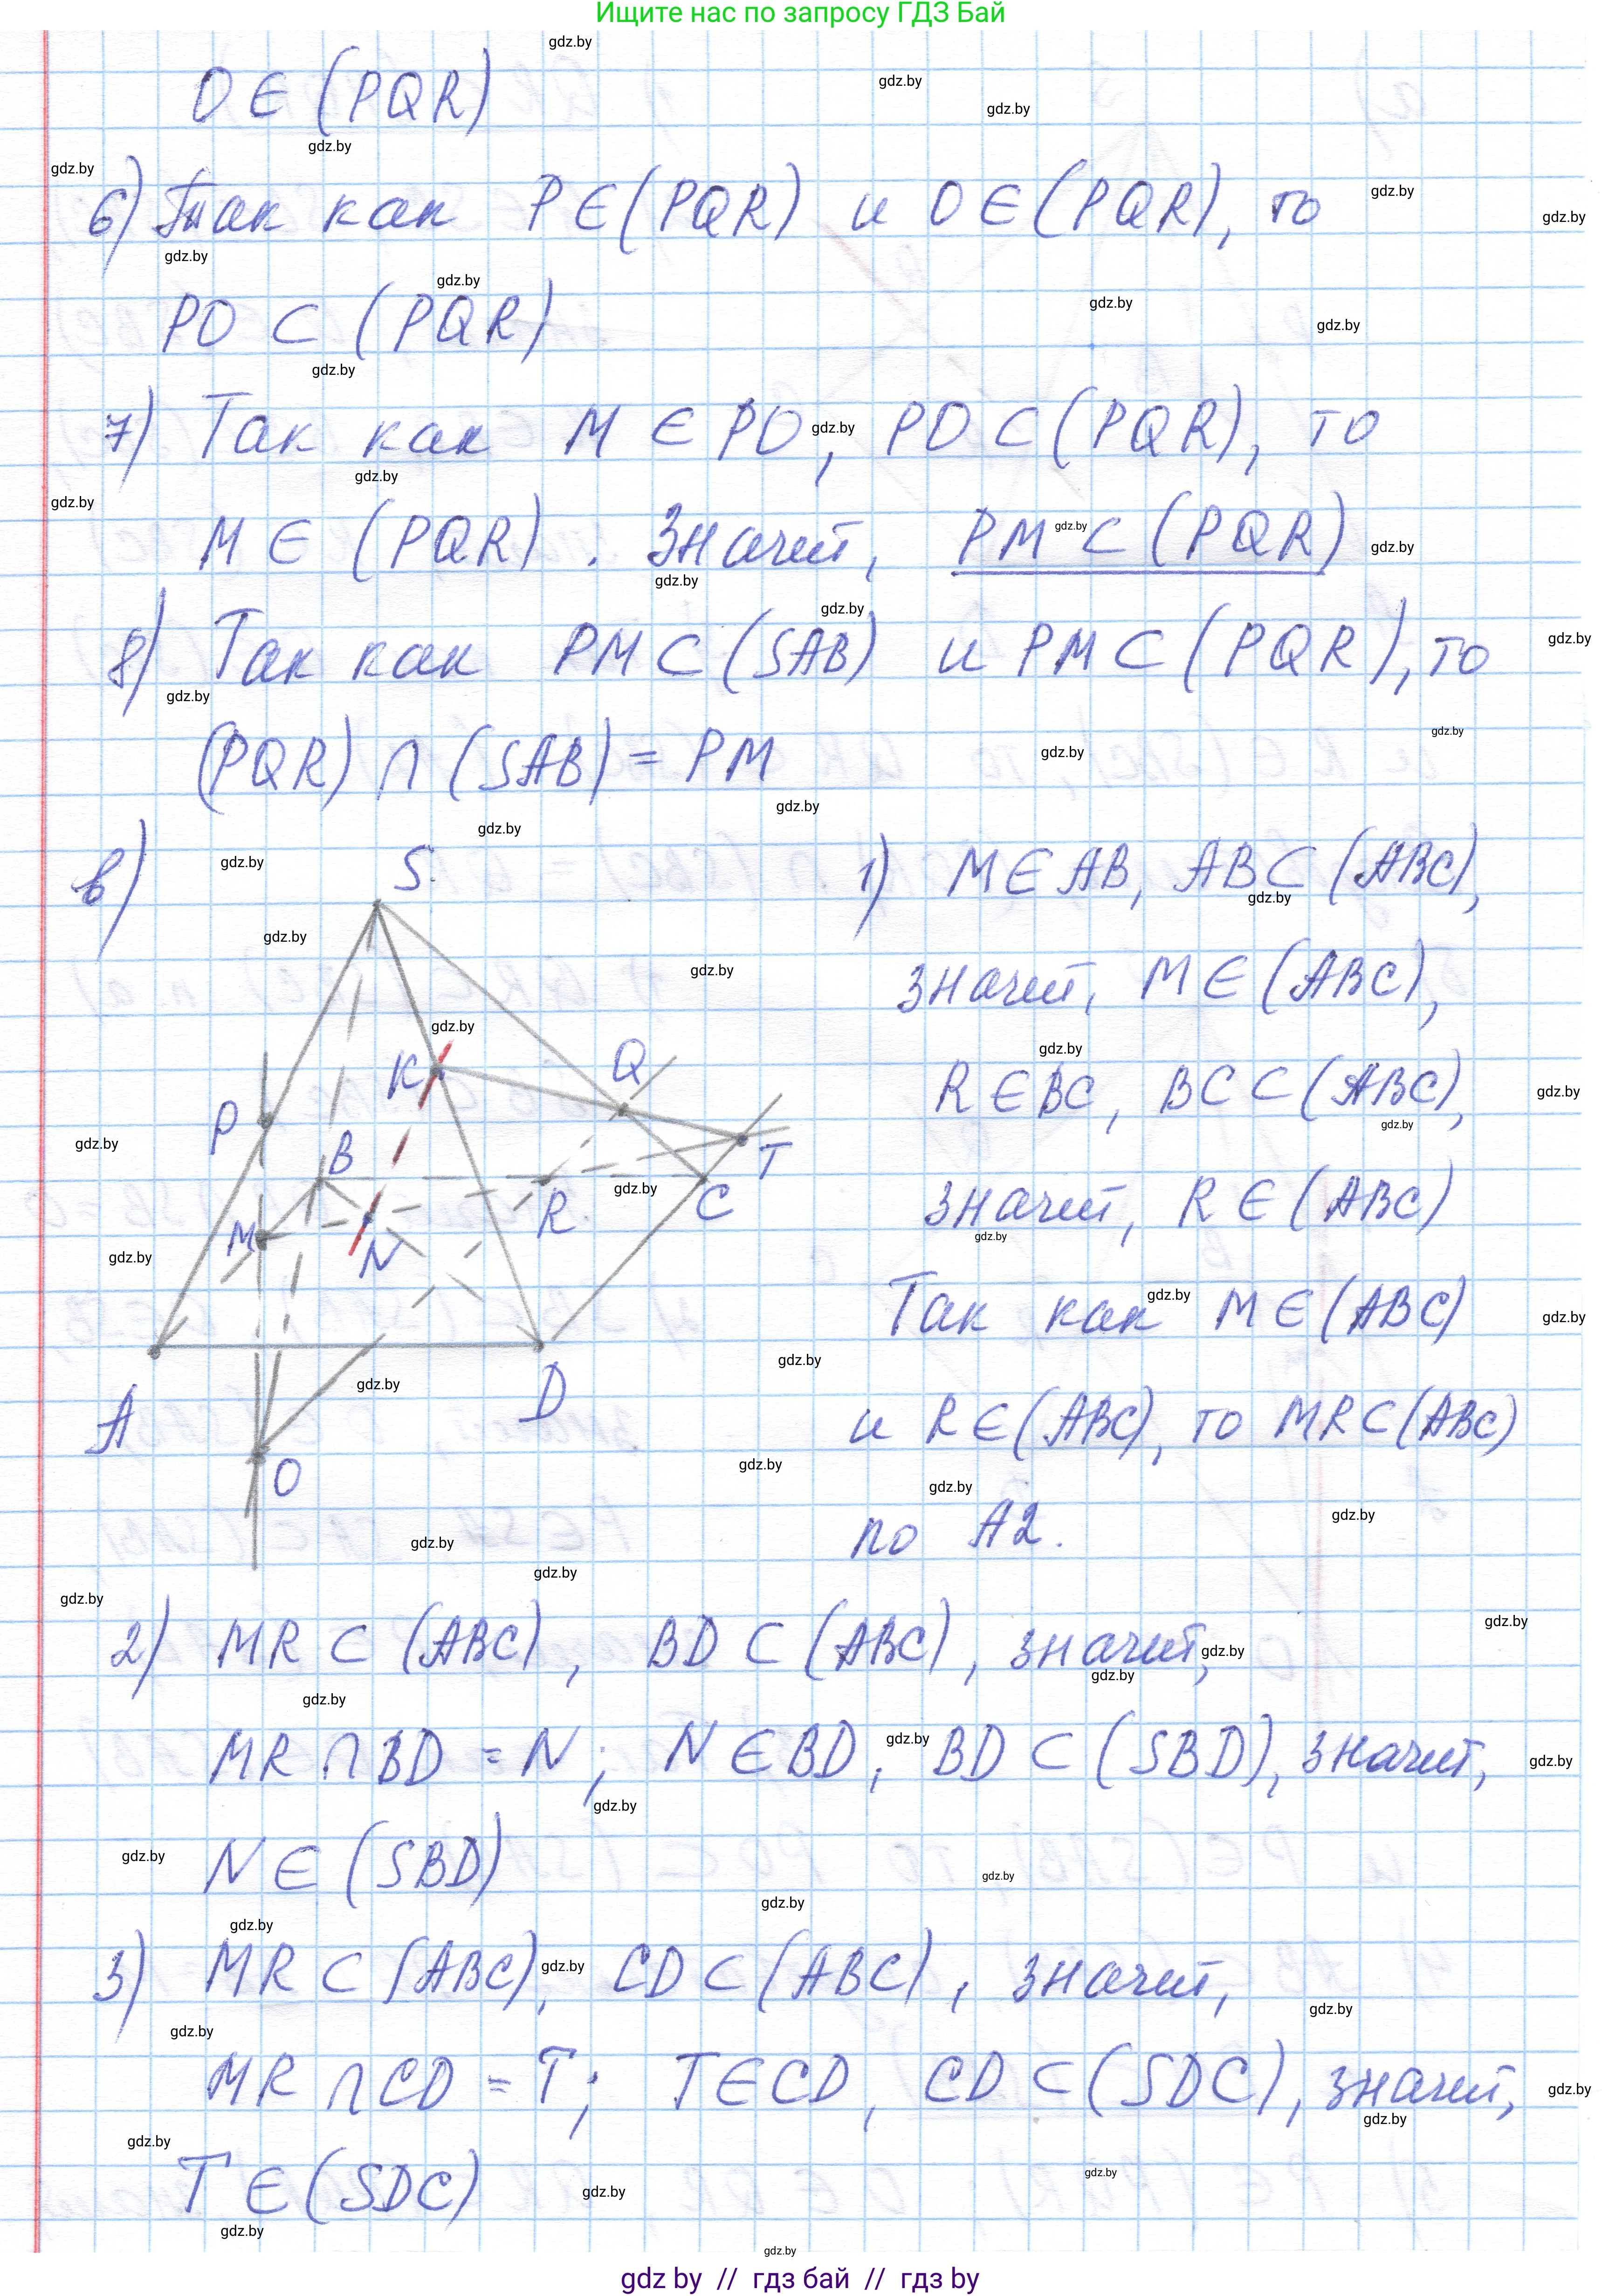 Ищите нас по запросу ГДЗ Бай
O ∈ (PQR)
6) Так как P ∈ (PQR) и O ∈ (PQR), то
PO ⊂ (PQR)
7) Так как M ∈ PO, PO ⊂ (PQR), то
M ∈ (PQR). Значит, PM ⊂ (PQR)
8) Так как PM ⊂ (SAB) и PM ⊂ (PQR), то
(PQR) ∩ (SAB) = PM
в)
S
K
Q
P
B
T
M
N
R
C
A
D
O
1) M ∈ AB, AB ⊂ (ABC),
значит, M ∈ (ABC),
R ∈ BC, BC ⊂ (ABC),
значит, R ∈ (ABC)
Так как M ∈ (ABC)
и R ∈ (ABC), то MR ⊂ (ABC)
по A2.
2) MR ⊂ (ABC), BD ⊂ (ABC), значит,
MR ∩ BD = N; N ∈ BD, BD ⊂ (SBD), значит,
N ∈ (SBD)
3) MR ⊂ (ABC), CD ⊂ (ABC), значит,
MR ∩ CD = T; T ∈ CD, CD ⊂ (SDC), значит,
T ∈ (SDC)
gdz.by
gdz by // гдз бай // гдз by